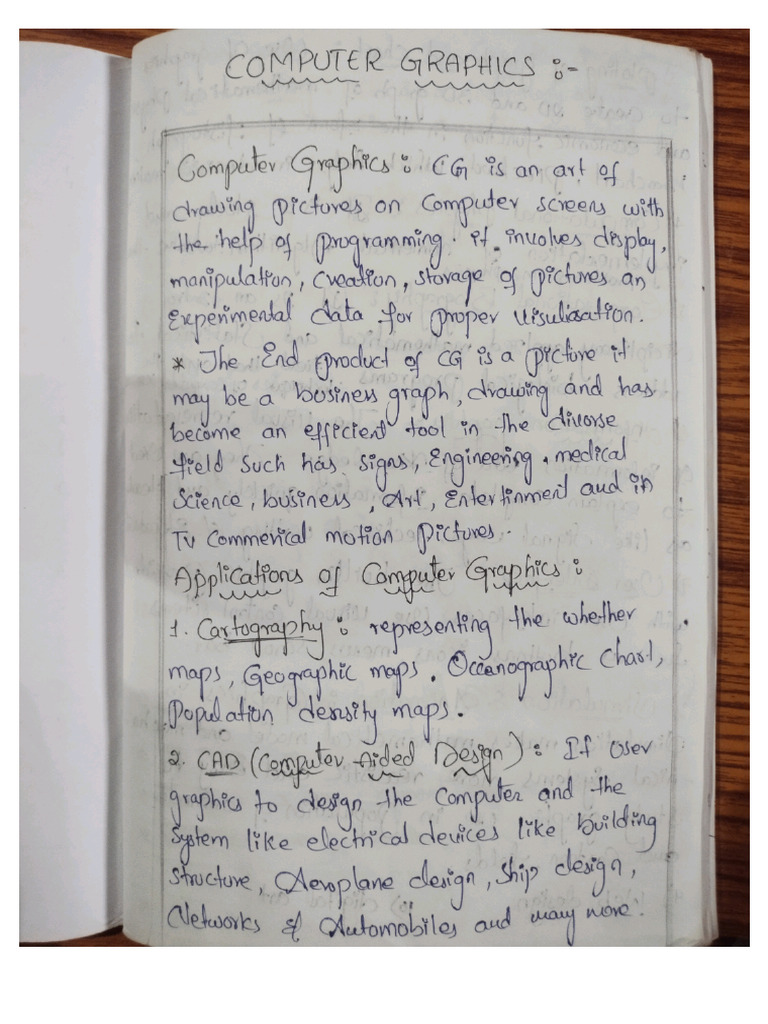 COMPUTER GRAPHICS :-
Computer Graphics : CG is an art of
drawing pictures on computer screens with
the help of programming. it involves display,
manipulation, Creation, storage of pictures an
Experimental data for proper visulisation.
* The End product of CG is a picture it
may be a business graph, drawing and has
become an efficient tool in the diverse
field such has signs, Engineering, medical
Science, business, Art, Entertinment and in
Tv commerical motion pictures.
Applications of Computer Graphics :
1. Cartography : representing the whether
maps, Geographic maps. Oceanographic Chart,
Population density maps.
2. CAD (Computer Aided Design) : If user
graphics to design the computer and the
System like electrical devices like building
structure, Aeroplane design, ship design,
Networks & Automobiles and many more.